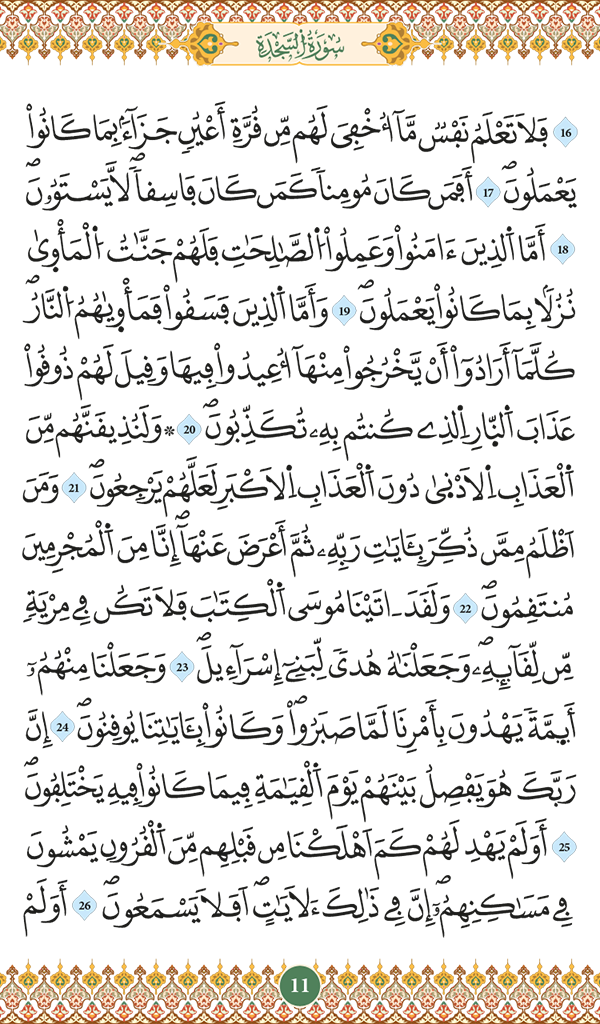 سُورَةُ السَّجْدَةِ
16 فَلَا تَعْلَمُ نَفْسٞ مَّآ أُخْفِيَ لَهُم مِّن قُرَّةِ أَعْيُنٖ جَزَآءَۢ بِمَا كَانُواْ
يَعْمَلُونَۖ 17 أَفَمَن كَانَ مُومِناٗ كَمَن كَانَ فَاسِقاٗۖ لَّا يَسْتَوُۥنَۖ
18 أَمَّا اَ۬لذِينَ ءَامَنُواْ وَعَمِلُواْ اُ۬لصَّٰلِحَٰتِ فَلَهُمْ جَنَّٰتُ اُ۬لْمَأْوۭىٰ
نُزُلَاۢ بِمَا كَانُواْ يَعْمَلُونَۖ 19 وَأَمَّا اَ۬لذِينَ فَسَقُواْ فَمَأْو۪ىٰهُمُ اُ۬لنَّارُۖ
كُلَّمَآ أَرَادُوٓاْ أَنْ يَّخْرُجُواْ مِنْهَآ أُعِيدُواْ فِيهَا وَقِيلَ لَهُمْ ذُوقُواْ
عَذَابَ اَ۬لنّ۪ارِ اِ۬لذِے كُنتُم بِهِۦ تُكَذِّبُونَۖ 20 ۞ وَلَنُذِيقَنَّهُم مِّنَ
اَ۬لْعَذَابِ اِ۬لَادْن۪ىٰ دُونَ اَ۬لْعَذَابِ اِ۬لَاكْبَرِ لَعَلَّهُمْ يَرْجِعُونَۖ 21 وَمَنَ
اَظْلَمُ مِمَّن ذُكِّرَ بِـَٔايَٰتِ رَبِّهِۦ ثُمَّ أَعْرَضَ عَنْهَآۖ إِنَّا مِنَ اَ۬لْمُجْرِمِينَ
مُنتَقِمُونَۖ 22 وَلَقَدَ اٰتَيْنَا مُوسَى اَ۬لْكِتَٰبَ فَلَا تَكُن فِے مِرْيَةٖ
مِّن لِّقَآئِهِۦۖ وَجَعَلْنَٰهُ هُدىٗ لِّبَنِےٓ إِسْرَآءِيلَۖ 23 وَجَعَلْنَا مِنْهُمُۥٓ
أَئِمَّةٗ يَهْدُونَ بِأَمْرِنَا لَمَّا صَبَرُواْۖ وَكَانُواْ بِـَٔايَٰتِنَا يُوقِنُونَۖ 24 إِنَّ
رَبَّكَ هُوَ يَفْصِلُ بَيْنَهُمْ يَوْمَ اَ۬لْقِيَٰمَةِ فِيمَا كَانُواْ فِيهِ يَخْتَلِفُونَۖ
25 أَوَلَمْ يَهْدِ لَهُمْ كَمَ اَهْلَكْنَا مِن قَبْلِهِم مِّنَ اَ۬لْقُرُونِ يَمْشُونَ
فِے مَسَٰكِنِهِمُۥٓۖ إِنَّ فِے ذَٰلِكَ ءَلَايَٰتٍۖ اَفَلَا يَسْمَعُونَۖ 26 أَوَلَمْ
11